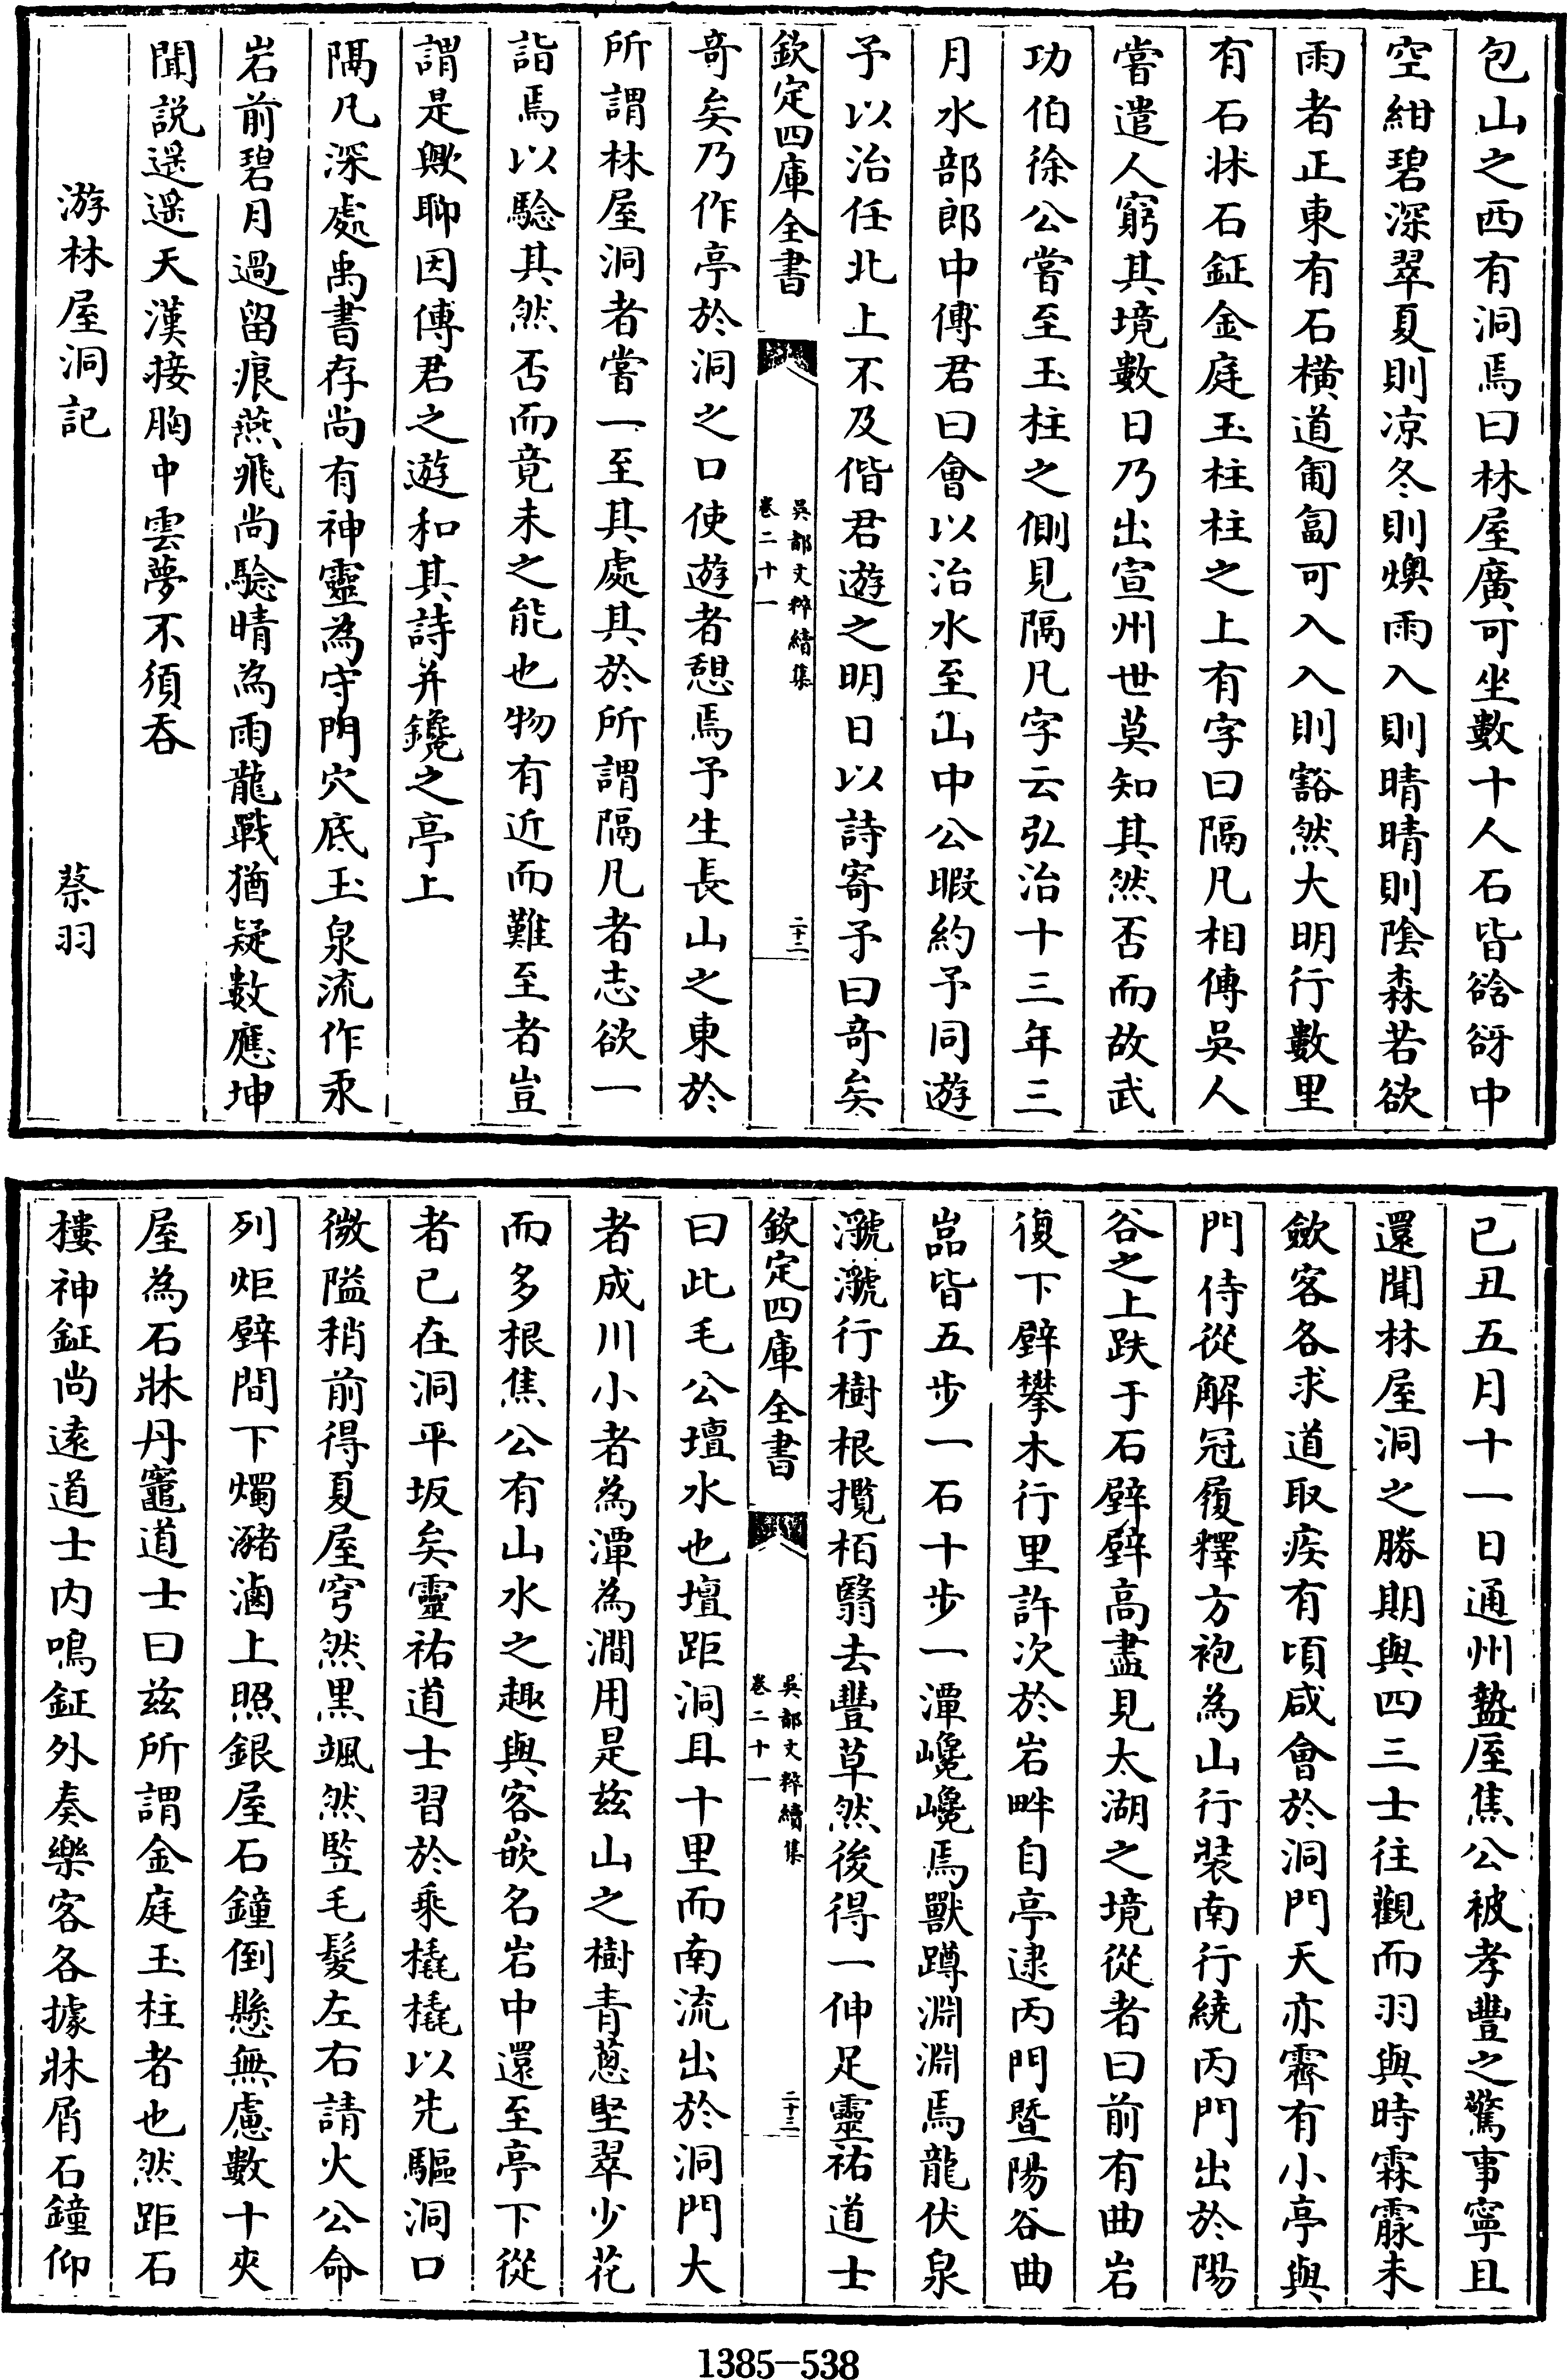 包山之西有洞焉曰林屋廣可坐數十人石皆谽谺中
空紺碧深翠夏則凉冬則燠雨入則晴晴則陰森若欲
雨者正東有石橫道匍匐可入入則豁然大明行數里
有石牀石鉦金庭玉柱柱之上有字曰隔凡相傳吳人
嘗遣人窮其境數日乃出宣州世莫知其然否而故武
功伯徐公嘗至玉柱之側見隔凡字云弘治十三年三
月水部郎中傅君曰會以治水至山中公暇約予同遊
予以治任北上不及偕君遊之明日以詩寄予曰竒矣
欽定四庫全書
吳都文粹續集
卷二十一
二十二
竒矣乃作亭於洞之口使遊者憩焉予生長山之東於
所謂林屋洞者嘗一至其處其於所謂隔凡者志欲一
詣焉以騐其然否而竟未之能也物有近而難至者豈
謂是歟聊因傅君之遊和其詩并鑱之亭上
隔凡深處禹書存尚有神靈為守門穴底玉泉流作汞
岩前碧月過留痕燕飛尚騐晴為雨龍戰猶疑數應坤
聞説遥遥天漢接胸中雲夢不須吞
游林屋洞記
蔡羽
己丑五月十一日通州盩厔焦公被孝豐之驚事寧且
還聞林屋洞之勝期與四三士往觀而羽與時霖霢未
歛客各求道取疾有頃咸會於洞門天亦霽有小亭與
門侍從解冠履釋方袍為山行装南行繞丙門出於陽
谷之上跌于石壁壁高盡見太湖之境從者曰前有曲岩
復下壁攀木行里許次於岩畔自亭逮丙門暨陽谷曲
嵓皆五步一石十步一潭巉巉焉獸蹲淵淵焉龍伏泉
㶁㶁行樹根攬栢翳去豐草然後得一伸足靈祐道士
欽定四庫全書
吳都文粹續集
卷二十一
二十三
曰此毛公壇水也壇距洞且十里而南流出於洞門大
者成川小者為潭為澗用是兹山之樹青葱堅翠少花
而多根焦公有山水之趣與客嵌名岩中還至亭下從
者已在洞平坂矣靈祐道士習於乘橇橇以先驅洞口
微隘稍前得夏屋穹然黑颯然監毛髮左右請火公命
列炬壁間下燭瀦滷上照銀屋石鐘倒懸無慮數十夾
屋為石牀丹竈道士曰兹所謂金庭玉柱者也然距石
樓神鉦尚遠道士内鳴鉦外奏樂客各據牀屑石鐘仰
1385-538